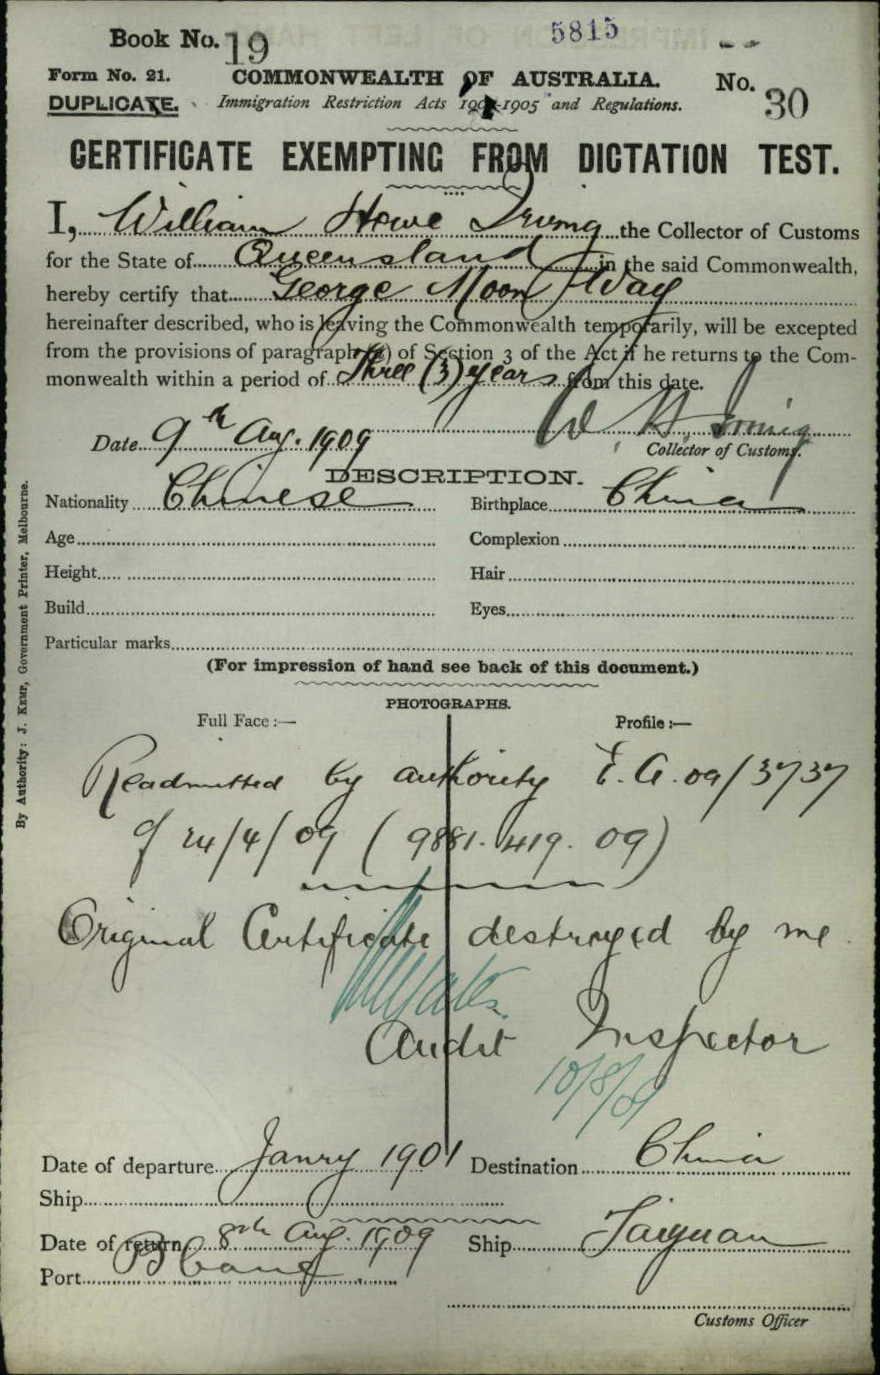 Book No. 19
5815
Form No. 21. COMMONWEALTH OF AUSTRALIA. No. 30
DUPLICATE. Immigration Restriction Acts 1901-1905 and Regulations.
CERTIFICATE EXEMPTING FROM DICTATION TEST.
I, William Howe Irving the Collector of Customs
for the State of Queensland in the said Commonwealth,
hereby certify that George Moon Way
hereinafter described, who is leaving the Commonwealth temporarily, will be excepted
from the provisions of paragraph (a) of Section 3 of the Act if he returns to the Com-
monwealth within a period of Three (3) years from this date.
W. H. Irving
Date 9th Aug. 1909 Collector of Customs.
DESCRIPTION.
Nationality Chinese Birthplace China
Age Complexion
Height Hair
Build Eyes
Particular marks
(For impression of hand see back of this document.)
PHOTOGRAPHS.
Full Face :— Profile :—
Readmitted by authority E. A. 09/3737
of 24/4/09 (9881. 419. 09)
Original Certificate destroyed by me
Audit Inspector
10/8/09
Date of departure Janry 1901 Destination China
Ship
Date of return 8th Aug. 1909 Ship Taiyuan
Port
Customs Officer
By Authority: J. Kemp, Government Printer, Melbourne.